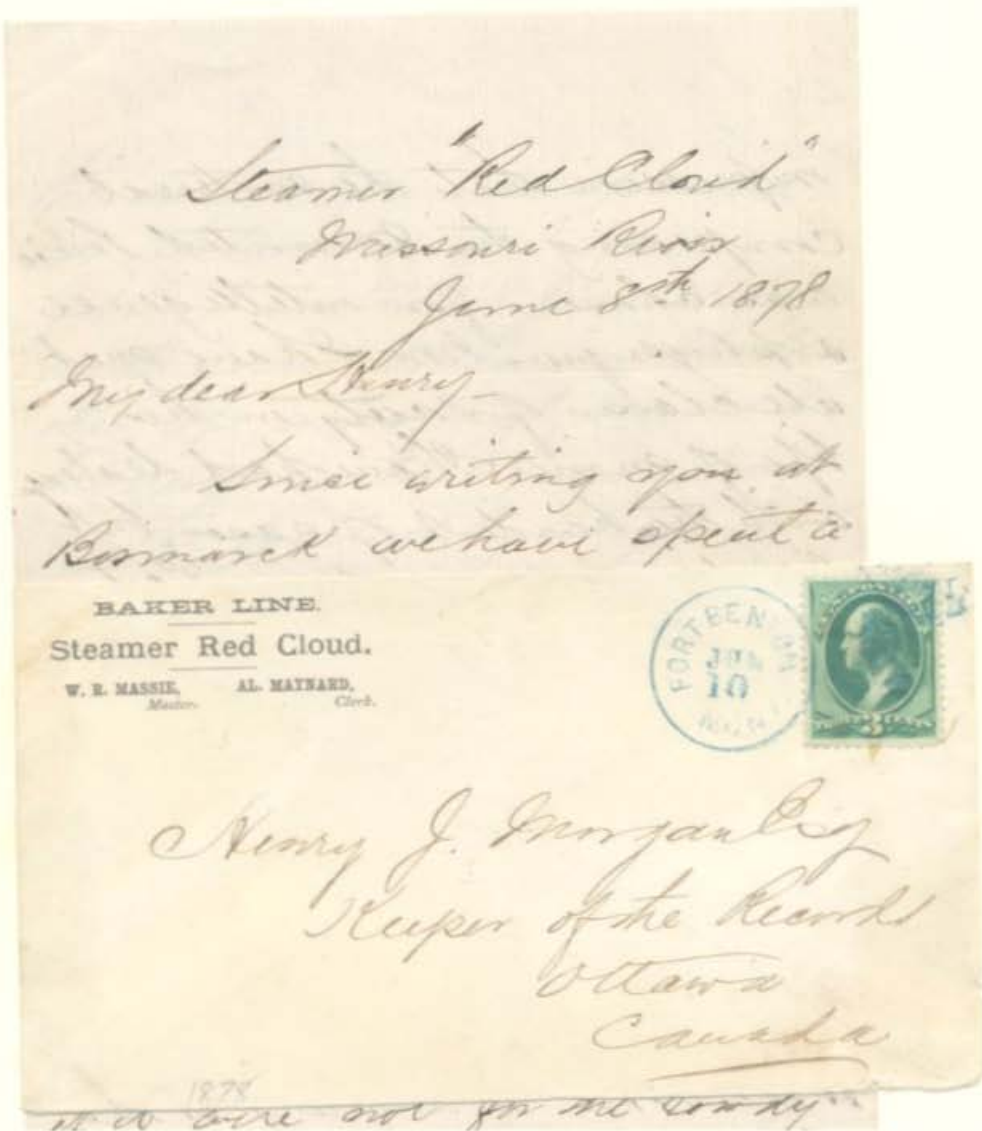 Steamer "Red Cloud"
Missouri River
June 8th 1878
My dear Henry-
Since writing you at
Bismarck we have spent a
BAKER LINE.
Steamer Red Cloud.
W. R. MASSIE, AL. MAYNARD,
Master. Clerk.
FORT BENTON
JUN
10
3
Henry J. Morgan Esq
Keeper of the Records
Ottawa
Canada
1878
it were not for the rowdy